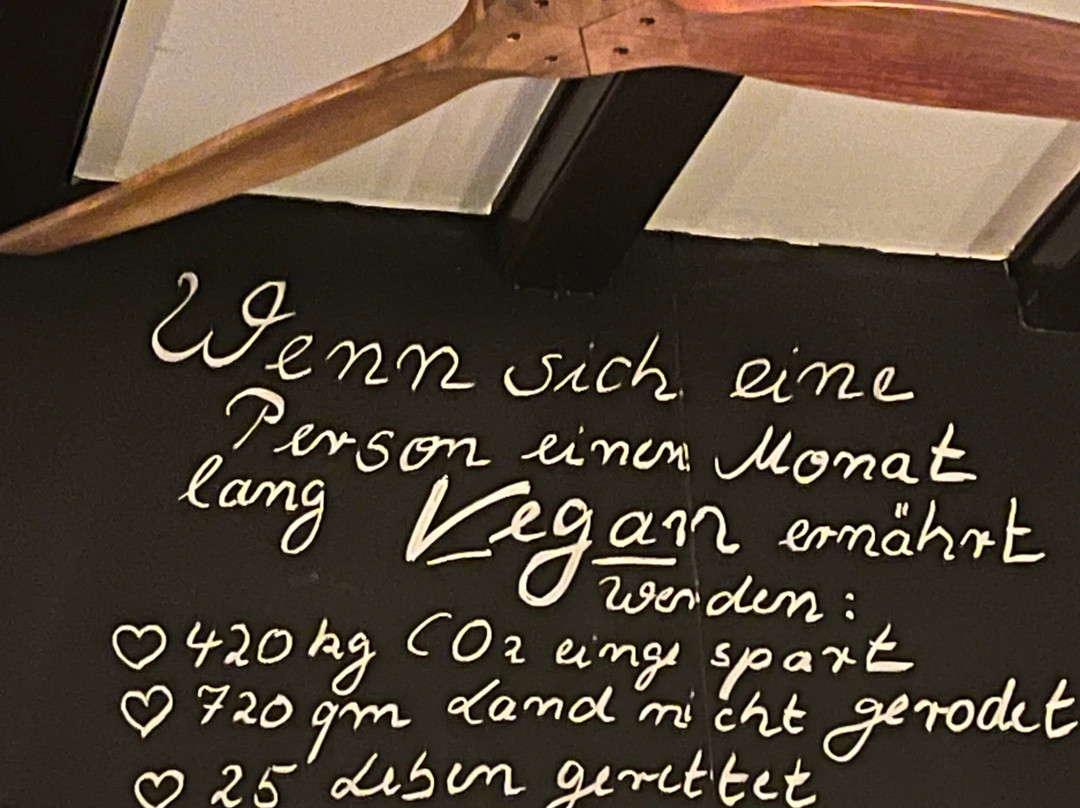 Wenn sich eine
Person einen Monat
lang Vegan ernährt
werden:
♡ 420 kg CO2 eingespart
♡ 720 qm Land nicht gerodet
♡ 25 Leben gerettet